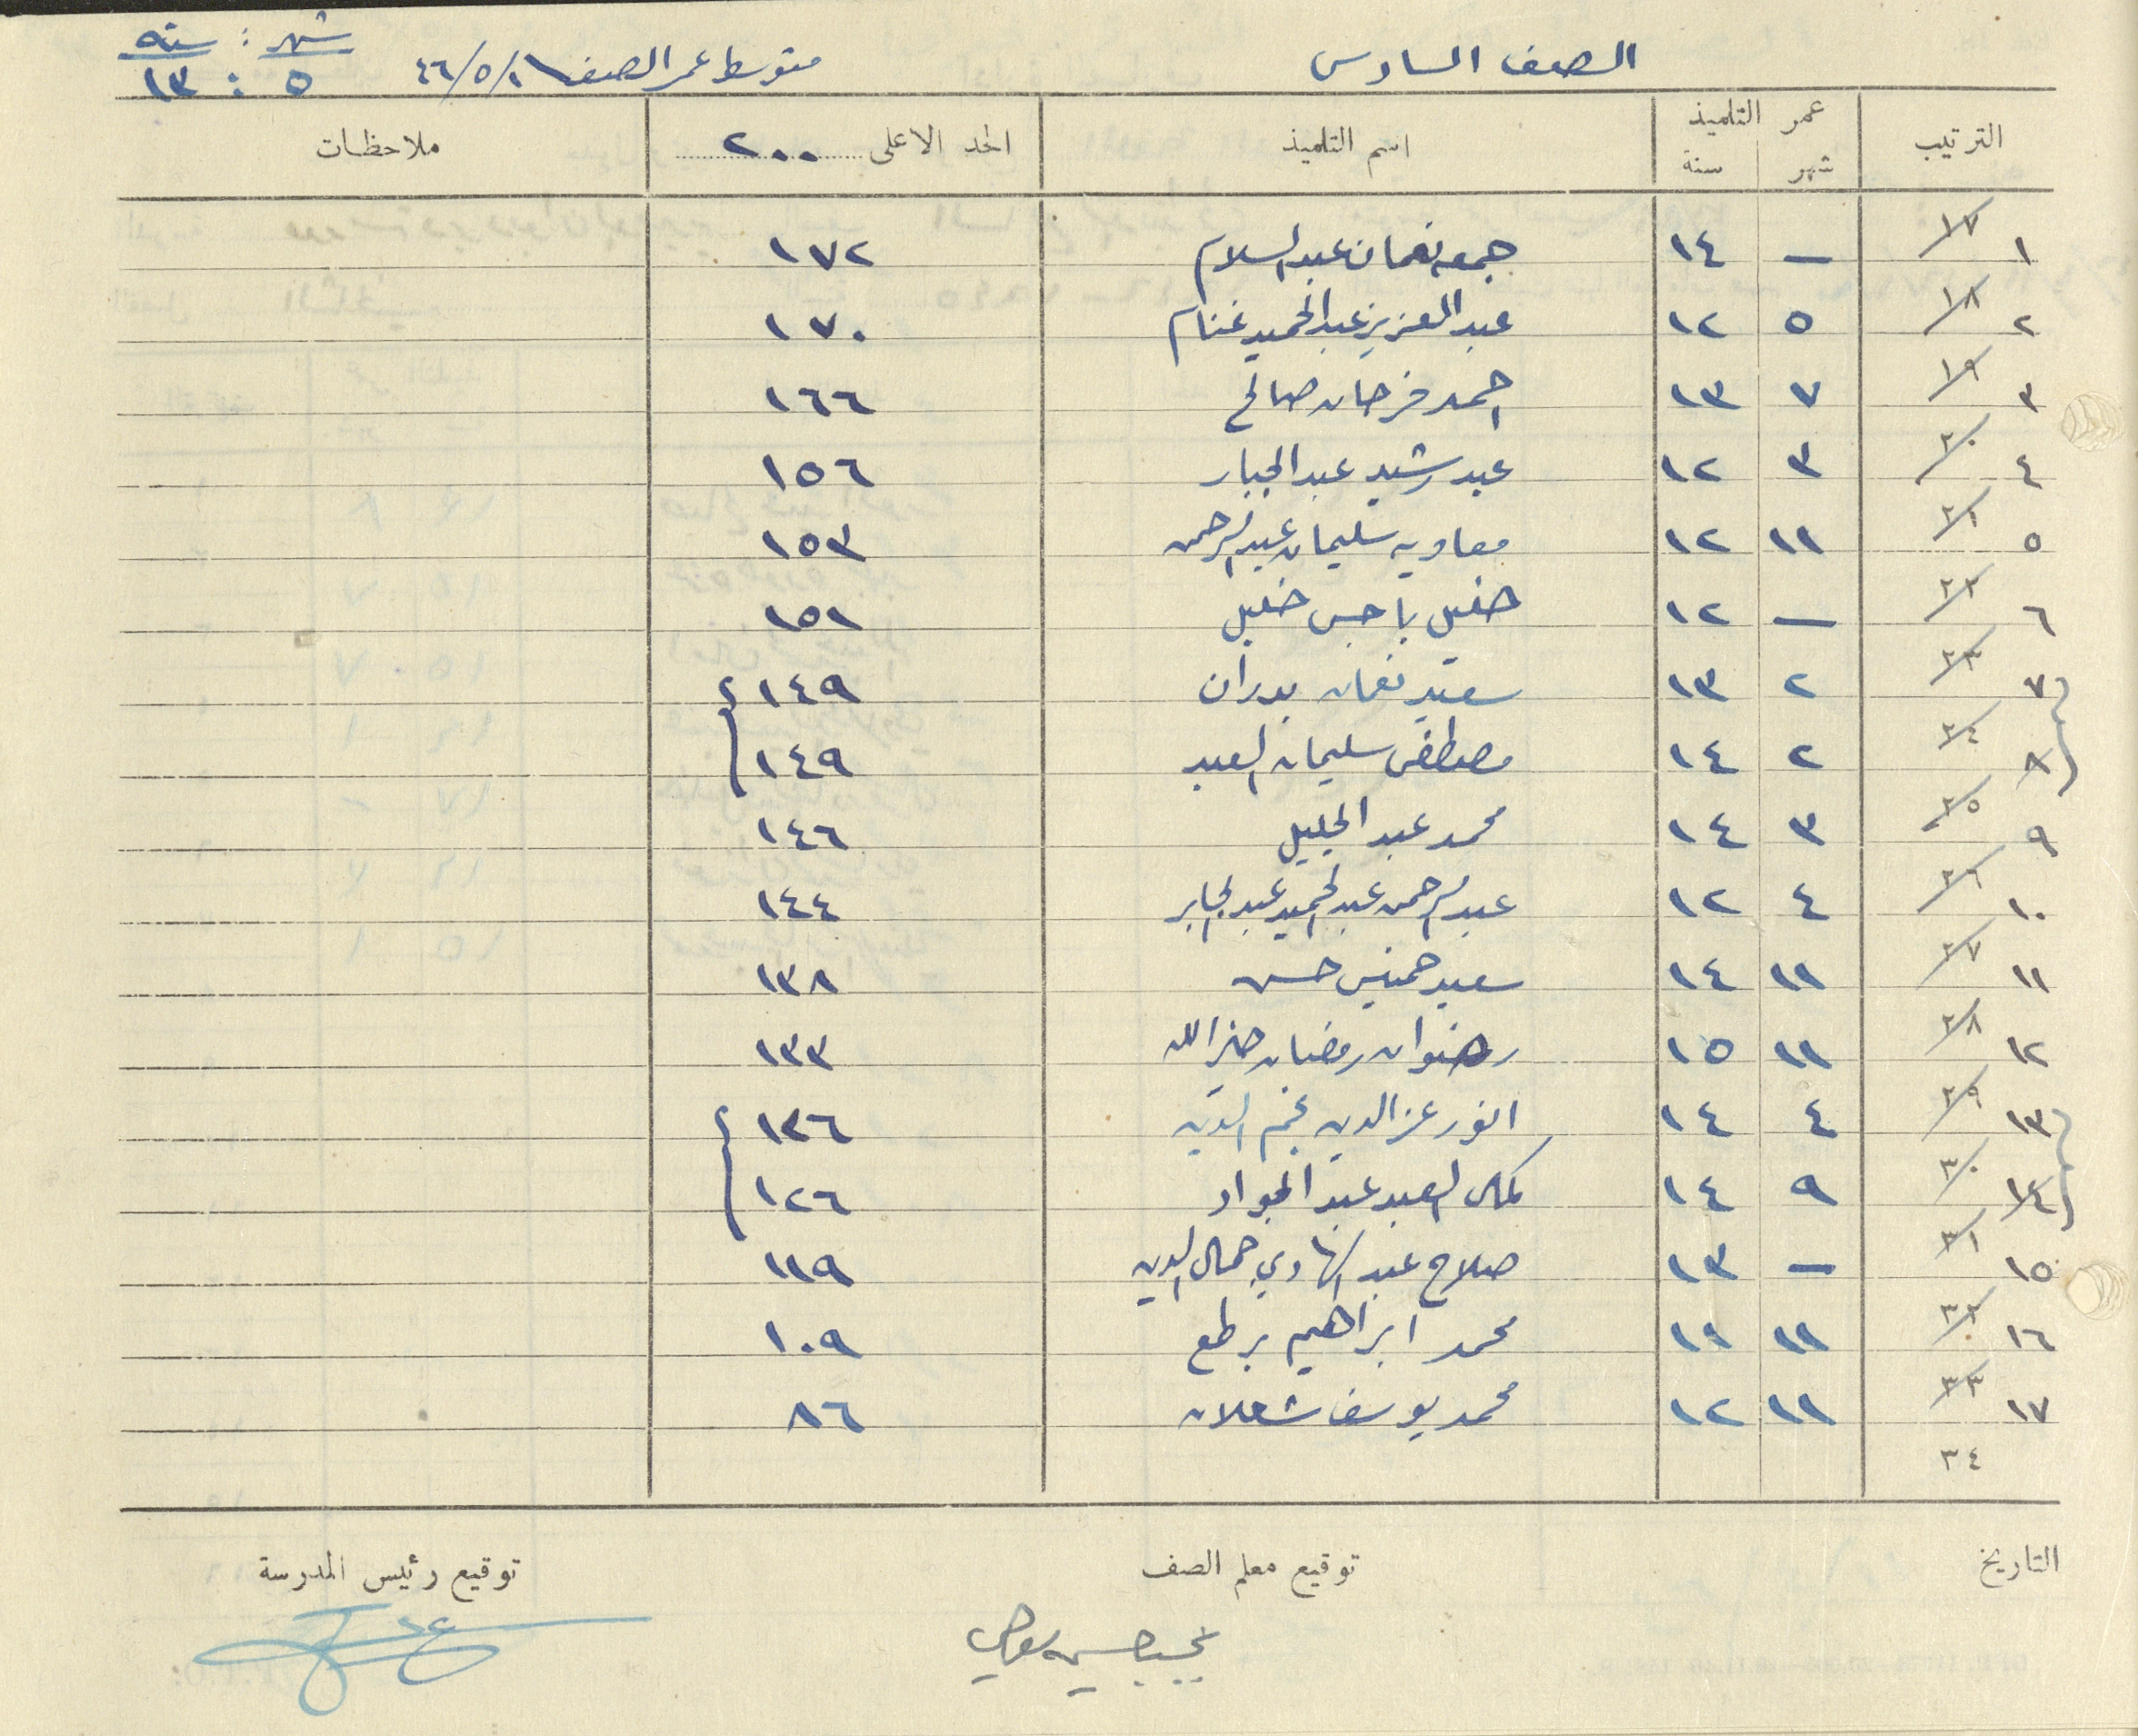 الصف السادس متوسط عمر الصف ٤٦/٥/١ شهر : سنه
٥ : ١٣
الترتيب عمر التلميذ اسم التلميذ الحد الاعلى ٢٠٠ ملاحظات
شهر سنة
١ ١٧ — ١٤ جمعه نعمان عبد السلام ١٧٢
٢ ١٨ ٥ ١٢ عبد العزيز عبد الحميد غنام ١٧٠
٣ ١٩ ٧ ١٣ احمد فرحان صالح ١٦٦
٤ ٢٠ ٣ ١٢ عبد رشيد عبد الجبار ١٥٦
٥ ٢١ ١١ ١٢ معاويه سليمان عبد الرحمن ١٥٣
٦ ٢٢ — ١٢ خليل باجس خليل ١٥١
٧ ٢٣ ٢ ١٣ سعيد نعمان بدران ١٤٩
٨ ٢٤ ٢ ١٤ مصطفى سليمان العبد ١٤٩
٩ ٢٥ ٣ ١٤ محمد عبد الجليل ١٤٦
١٠ ٢٦ ٤ ١٢ عبد الرحمن عبد الحميد عبد الجابر ١٤٤
١١ ٢٧ ١١ ١٤ سعيد خميس حسن ١٣٨
١٢ ٢٨ ١١ ١٥ رضوان رمضان خير الله ١٣٣
١٣ ٢٩ ٤ ١٤ انور عز الدين نجم الدين ١٢٦
١٤ ٣٠ ٩ ١٤ كمال العبد عبد الجواد ١٢٦
١٥ ٣١ — ١٣ صلاح عبد الهادي جمال الدين ١١٩
١٦ ٣٢ ١١ ١١ محمد ابراهيم برطع ١٠٩
١٧ ٣٣ ١١ ١٢ محمد يوسف شعلان ٨٦
٣٤
التاريخ توقيع معلم الصف توقيع رئيس المدرسة